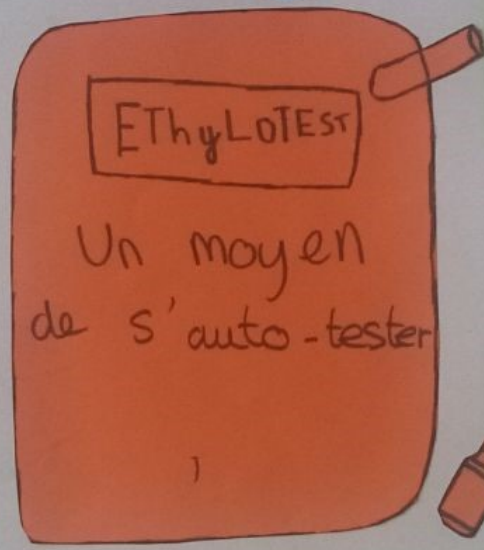 EThyLOTEST
Un moyen
de s'auto-tester